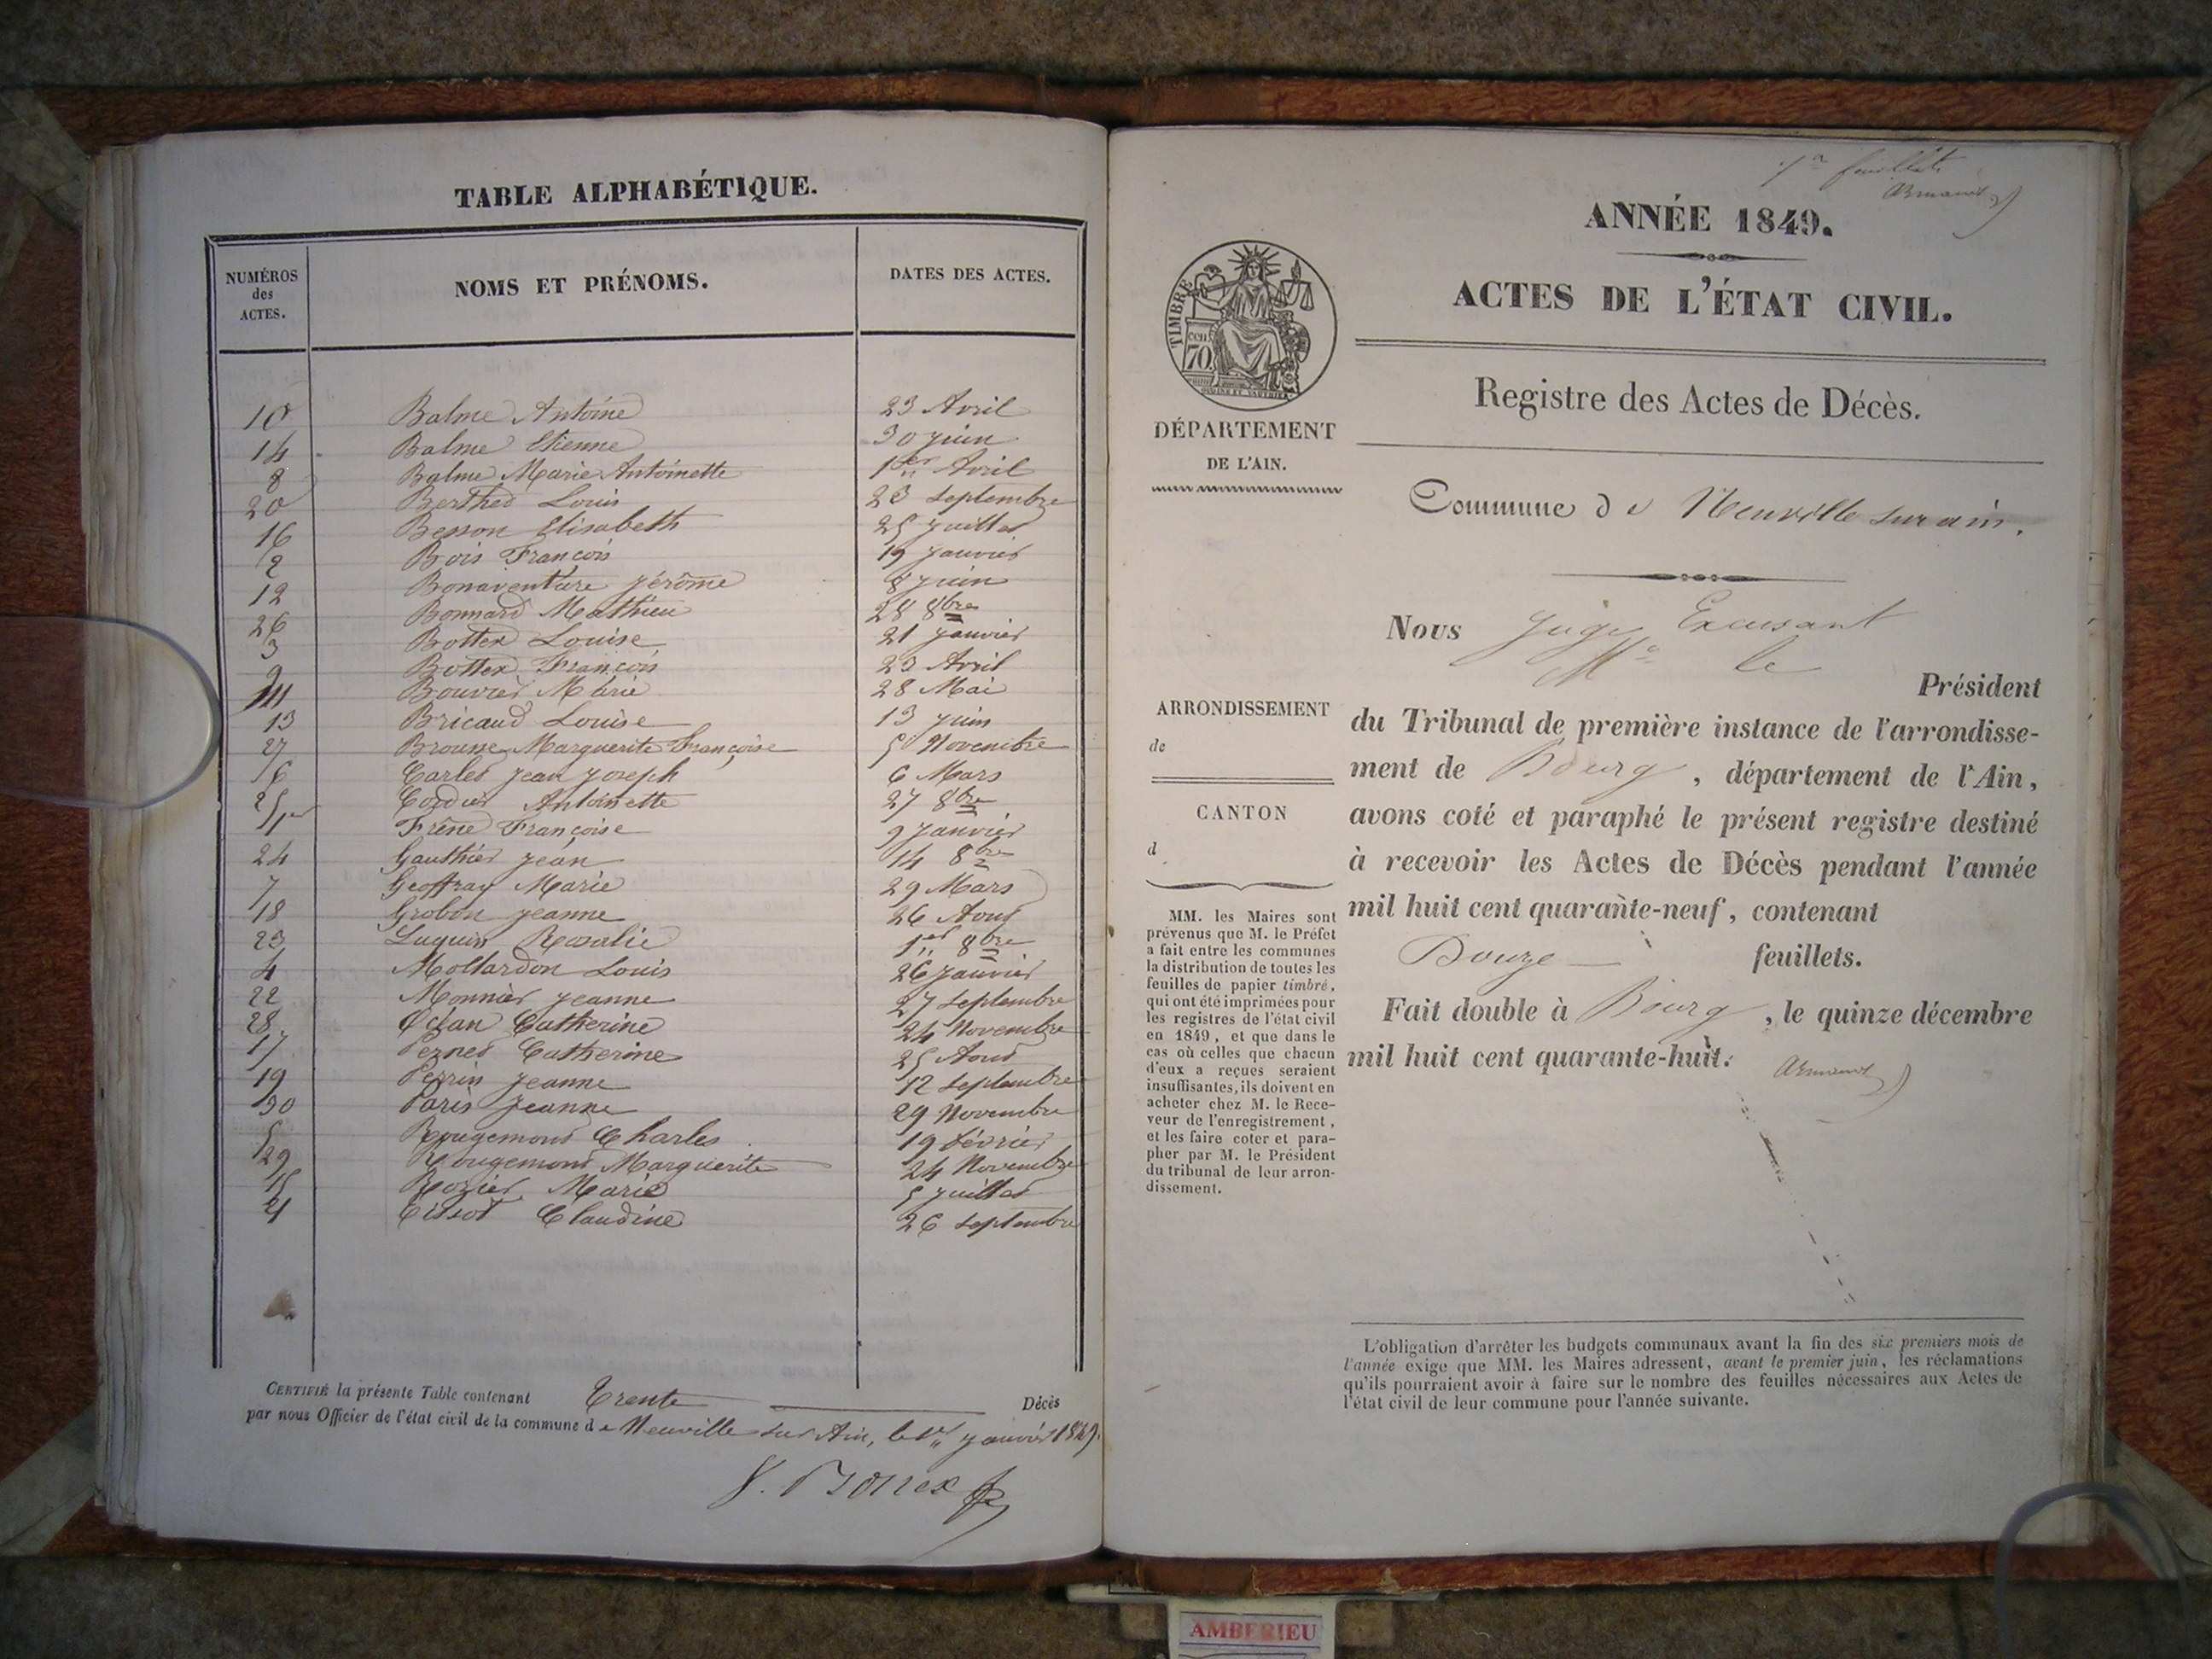 TABLE ALPHABÉTIQUE.
NUMÉROS des ACTES. NOMS ET PRÉNOMS. DATES DES ACTES.
10 Balme Antoine 23 Avril
14 Balme Etienne 30 juin
8 Balme Marie Antoinette 1er Avril
20 Berthed Louis 23 Septembre
16 Besson Elisabeth 25 Juillet
2 Bois François 19 Janvier
12 Bonaventure Jérôme 8 juin
26 Bonnard Mathieu 28 8bre
3 Bottex Louise 21 Janvier
9 Bottex François 23 Avril
11 Bouvier Marie 28 Mai
13 Bricaud Louise 13 juin
27 Brousse Marguerite Françoise 5 Novembre
6 Carled Jean Joseph 6 Mars
25 Cordier Antoinette 27 8bre
1er Frêne Françoise 9 Janvier
24 Gauthier Jean 14 8bre
7 Geoffray Marie 29 Mars
18 Grobon Jeanne 26 Aout
23 Luquin Rosalie 1er 8bre
4 Mollardon Louis 26 Janvier
22 Monnier Jeanne 27 Septembre
28 Catherine 24 Novembre
17 Pernet Catherine 25 Aout
19 Perrin Jeanne 12 Septembre
30 Paris Jeanne 29 Novembre
5 Rougemont Charles 19 Février
29 Rougemont Marguerite 24 Novembre
15 Rozier Marie 5 Juillet
21 Tissot Claudine 26 Septembre
CERTIFIÉ la présente Table contenant Trente Décès
par nous Officier de l'état civil de la commune de Neuville sur Ain, le 1er Janvier 1849.
1er feuillet
Armand
ANNÉE 1849.
ACTES DE L'ÉTAT CIVIL.
TIMBRE
70
Registre des Actes de Décès.
DÉPARTEMENT
DE L'AIN.
Commune de Neuville sur ain.
Nous Juge Excusant
Mr le
Président
du Tribunal de première instance de l'arrondisse-
ment de Bourg, département de l'Ain,
avons coté et paraphé le présent registre destiné
à recevoir les Actes de Décès pendant l'année
mil huit cent quarante-neuf, contenant
Douze feuillets.
Fait double à Bourg, le quinze décembre
mil huit cent quarante-huit.
Armand
ARRONDISSEMENT
de
CANTON
d
MM. les Maires sont
prévenus que M. le Préfet
a fait entre les communes
la distribution de toutes les
feuilles de papier timbré,
qui ont été imprimées pour
les registres de l'état civil
en 1849, et que dans le
cas où celles que chacun
d'eux a reçues seraient
insuffisantes, ils doivent en
acheter chez M. le Rece-
veur de l'enregistrement,
et les faire coter et para-
pher par M. le Président
du tribunal de leur arron-
dissement.
L'obligation d'arrêter les budgets communaux avant la fin des six premiers mois de
l'année exige que MM. les Maires adressent, avant le premier juin, les réclamations
qu'ils pourraient avoir à faire sur le nombre des feuilles nécessaires aux Actes de
l'état civil de leur commune pour l'année suivante.
AMBERIEU